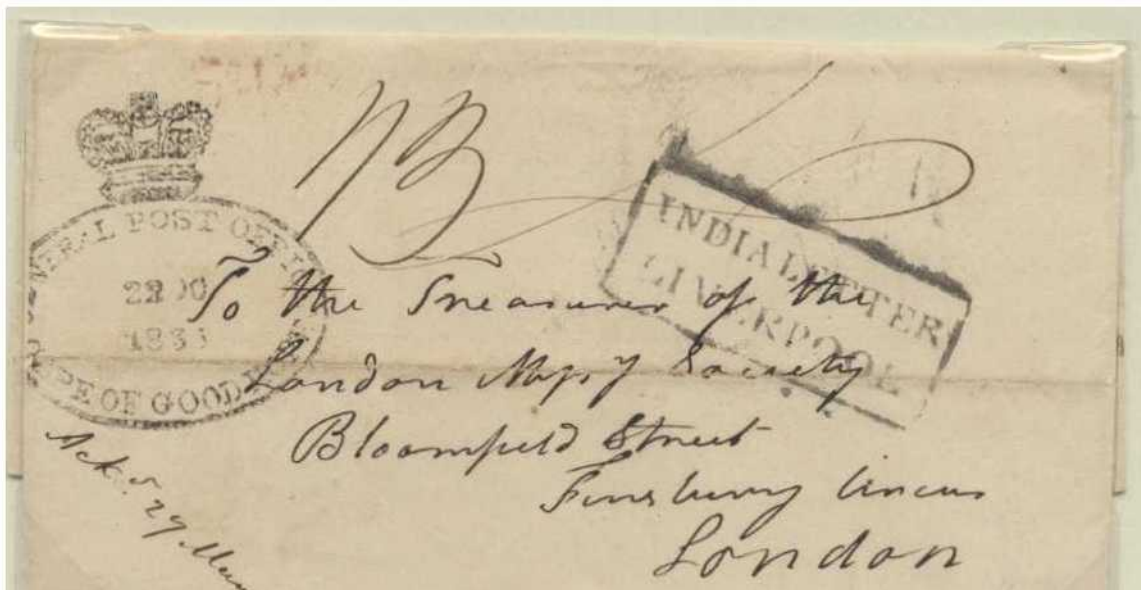 GENERAL POST OFFICE
22
183
CAPE OF GOOD HOPE
INDIA LETTER
LIVERPOOL
To the Treasurer of the
London Missy Society
Bloomfield Street
Finsbury Circus
London
Ackd 27